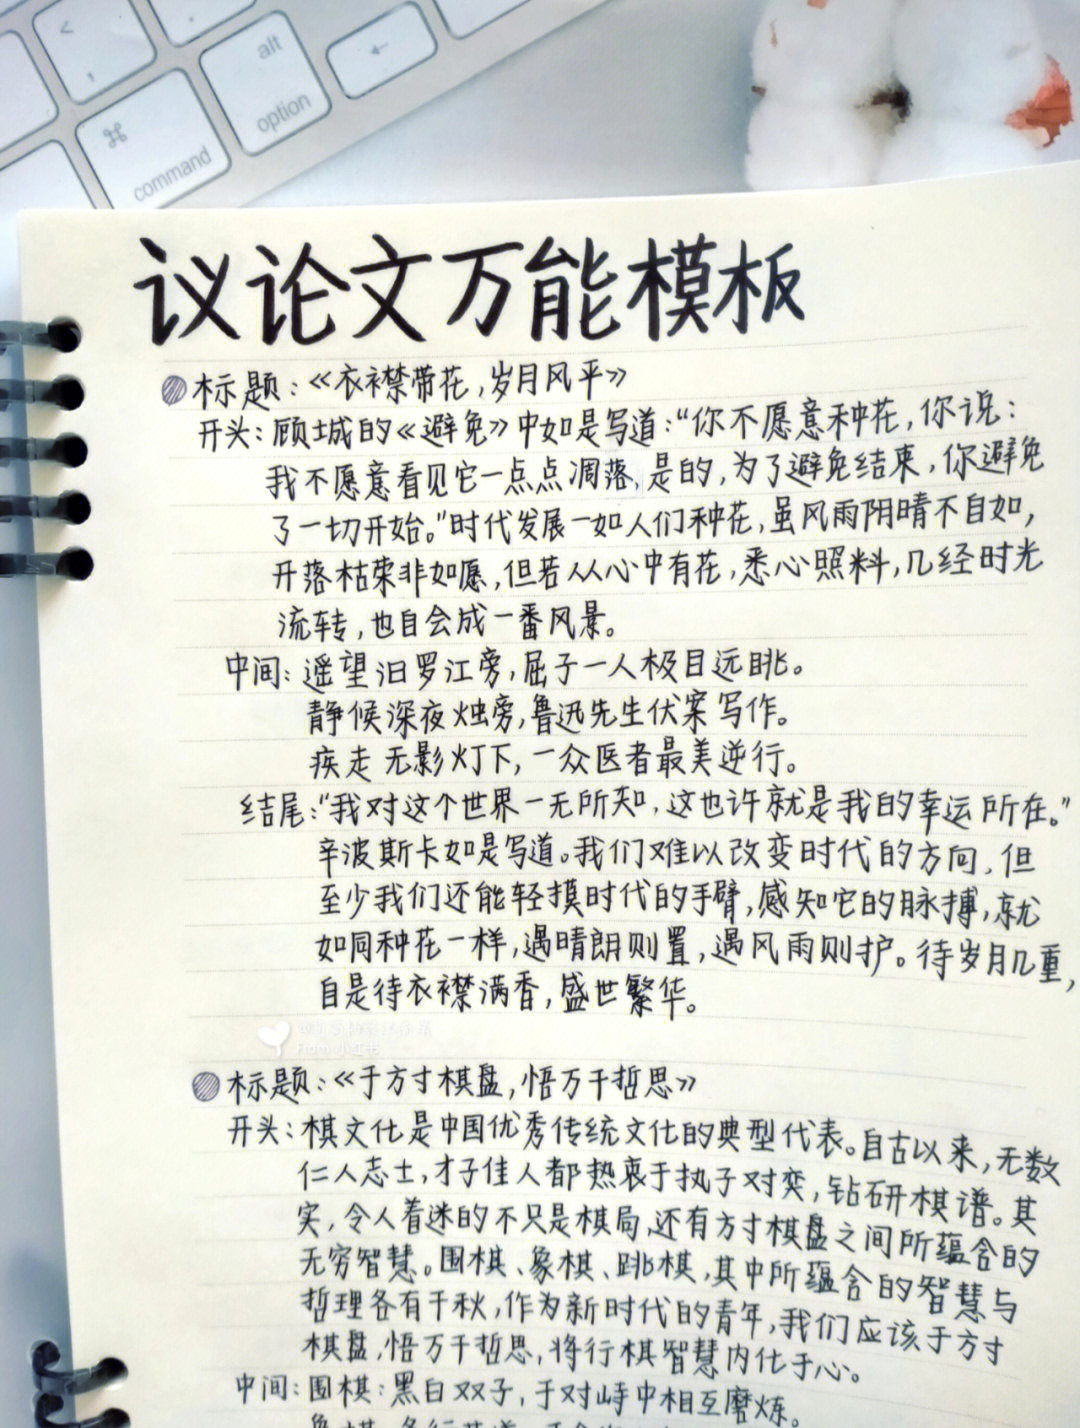 <
,
alt
option
←
⌘
command
议论文万能模板
标题：《衣襟带花，岁月风平》
开头：顾城的《避免》中如是写道：“你不愿意种花，你说：
我不愿意看见它一点点凋落，是的，为了避免结束，你避免
了一切开始。”时代发展一如人们种花，虽风雨阴晴不自如，
开落枯荣非如愿，但若从心中有花，悉心照料，几经时光
流转，也自会成一番风景。
中间：遥望汨罗江旁，屈子一人极目远眺。
静候深夜烛旁，鲁迅先生伏案写作。
疾走无影灯下，一众医者最美逆行。
结尾：“我对这个世界一无所知，这也许就是我的幸运所在。”
辛波斯卡如是写道。我们难以改变时代的方向，但
至少我们还能轻摸时代的手臂，感知它的脉搏，就
如同种花一样，遇晴朗则置，遇风雨则护。待岁月几重，
自是待衣襟满香，盛世繁华。
From 小红书
标题：《于方寸棋盘，悟万千哲思》
开头：棋文化是中国优秀传统文化的典型代表。自古以来，无数
仁人志士，才子佳人都热衷于执子对弈，钻研棋谱。其
实，令人着迷的不只是棋局，还有方寸棋盘之间所蕴含的
无穷智慧。围棋、象棋、跳棋，其中所蕴含的智慧与
哲理各有千秋，作为新时代的青年，我们应该于方寸
棋盘，悟万千哲思，将行棋智慧内化于心。
中间：围棋：黑白双子，于对峙中相互磨炼。